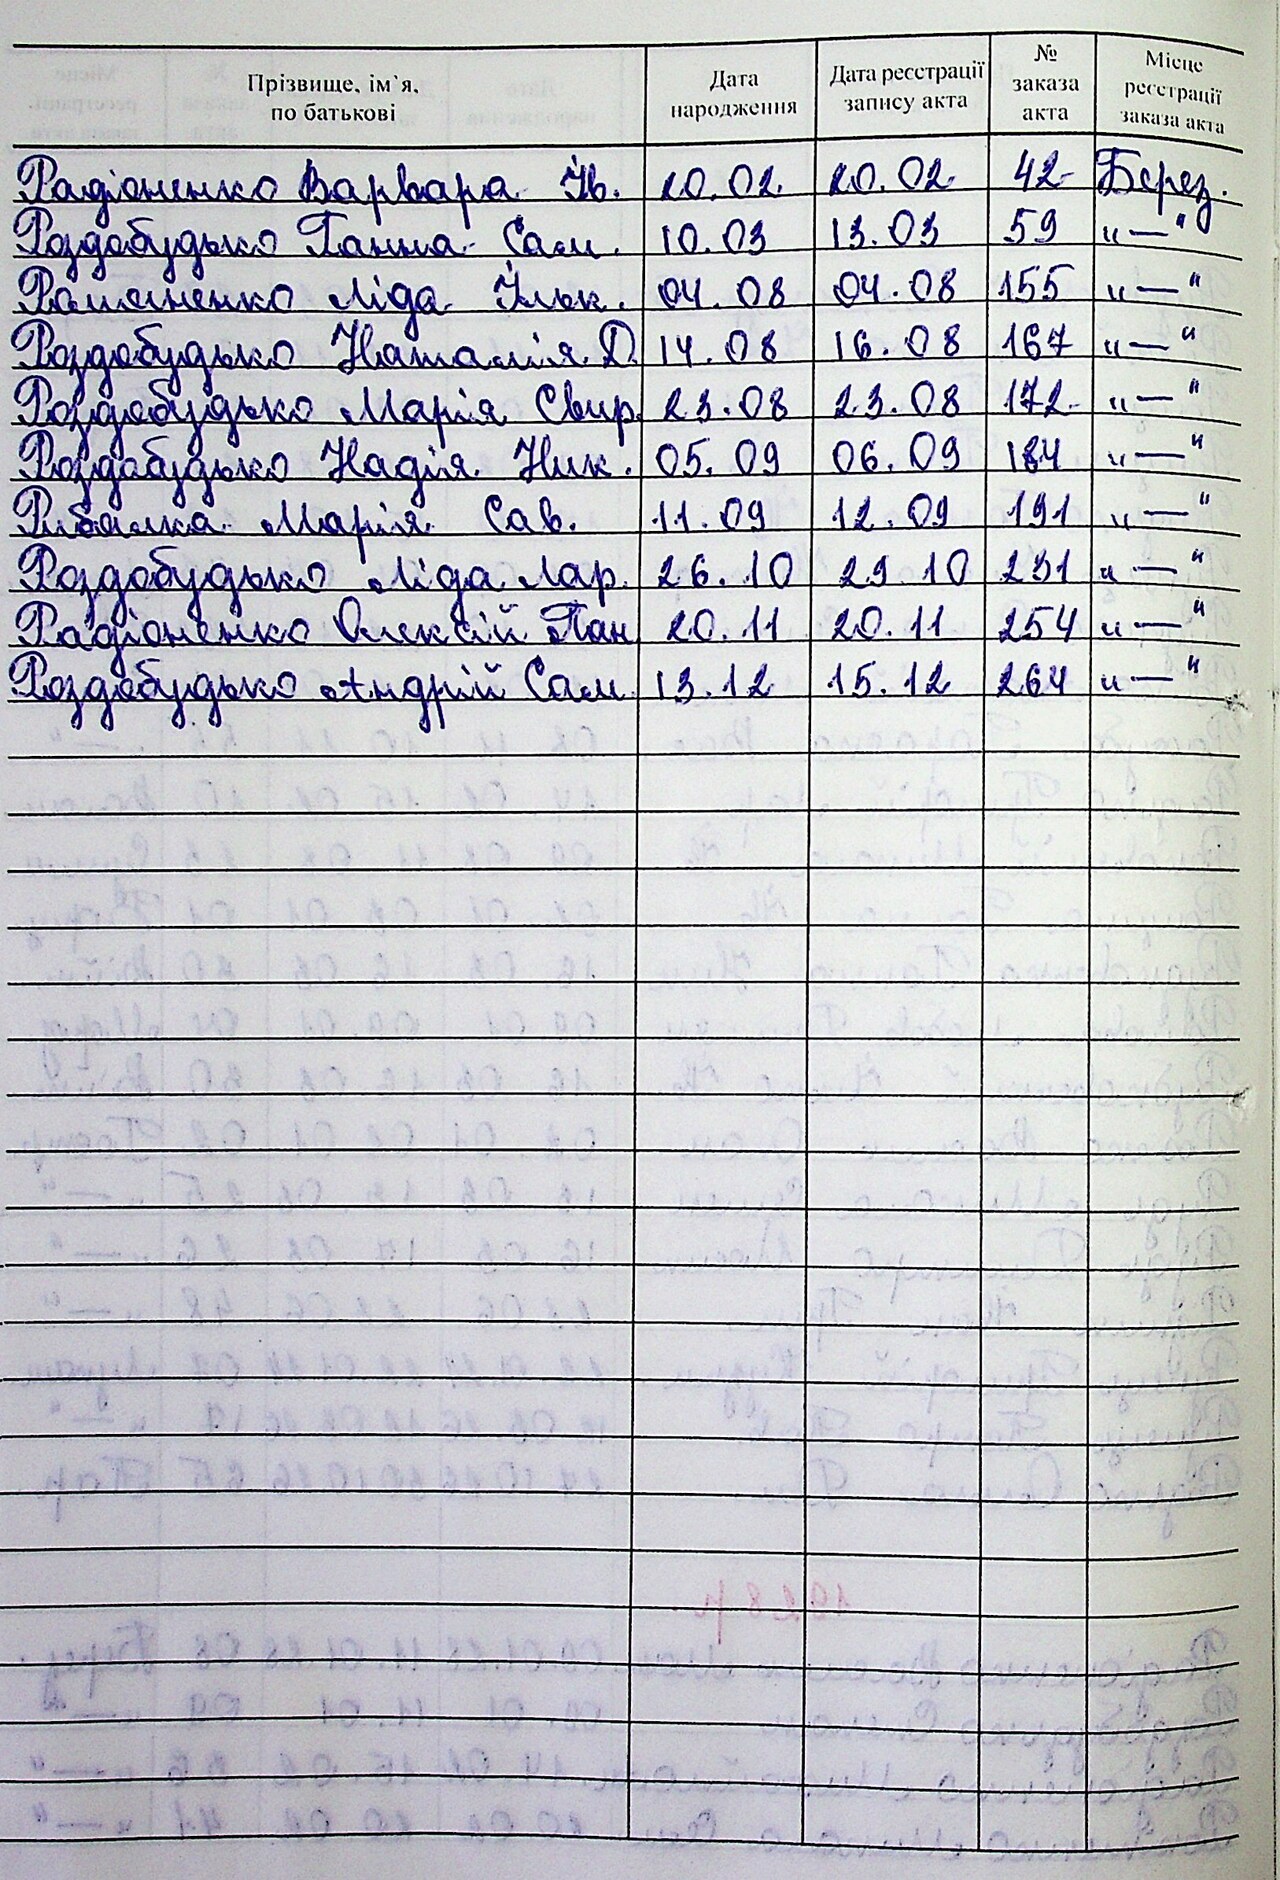 Прізвище, ім`я, по батькові | Дата народження | Дата реєстрації запису акта | № заказа акта | Місце реєстрації заказа акта
Радіоненко Варвара Ів. 20.02 20.02 42 Берез.
Роздобудько Ганна Сам. 10.03 13.03 59 „—"
Романенко Ліда Ільк. 04.08 04.08 155 „—"
Роздобудько Наталія Д. 14.08 16.08 167 „—"
Роздобудько Марія Свир. 23.08 23.08 172 „—"
Роздобудько Надія Ник. 05.09 06.09 184 „—"
Рибалка Марія Сав. 11.09 12.09 191 „—"
Роздобудько Ліда Лар. 26.10 29 10 231 „—"
Радіоненко Олексій Пан 20.11 20.11 254 „—"
Роздобудько Андрій Сам. 13.12 15.12 264 „—"